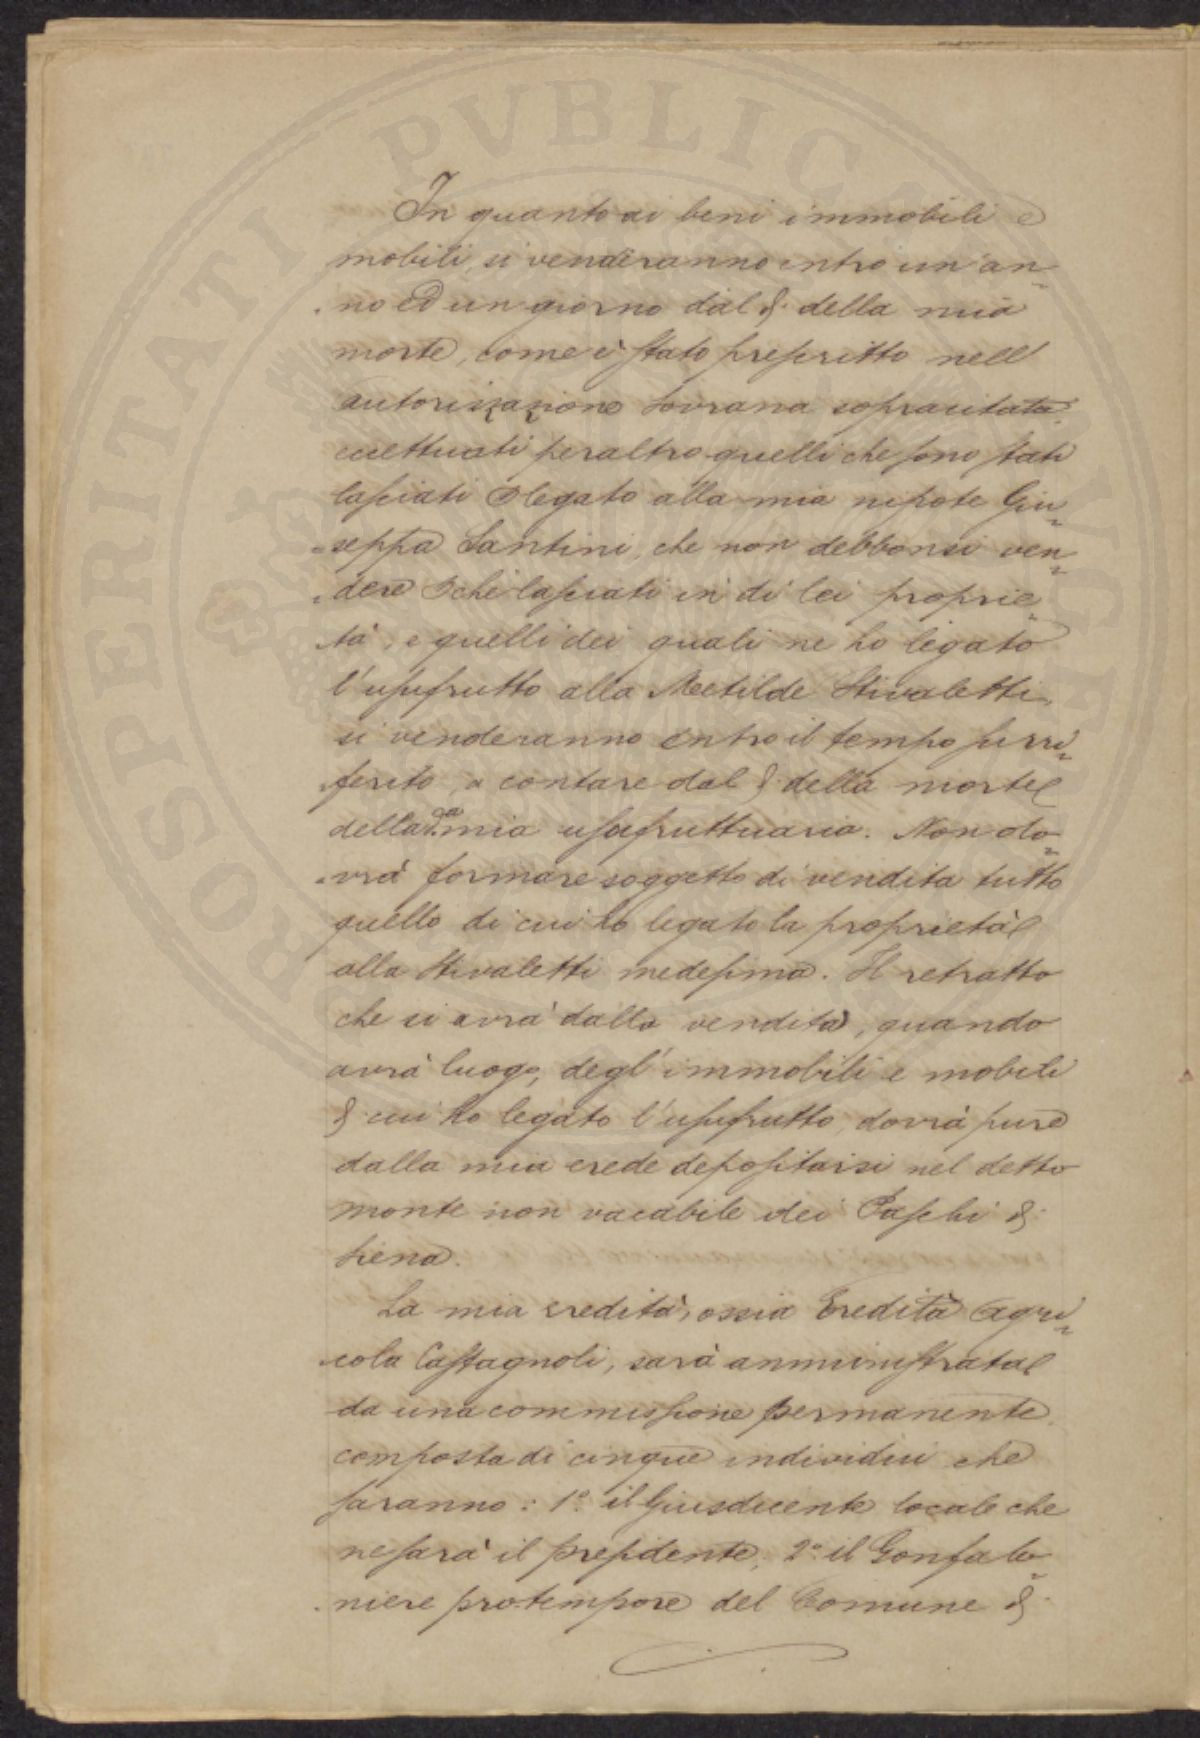 In quanto ai beni immobili e
mobili, si venderanno entro un'an=
=no ed un giorno dal dì della mia
morte, come è stato prescritto nell'
autorizzazione Sovrana sopracitata
eccettuati peraltro quelli che sono stati
lasciati legato alla mia nepote Giu=
=seppa Santini, che non debbonsi ven=
=dere lasciati in di lei proprie=
=tà, e quelli dei quali ne ho legato
l'usufrutto alla Metilde Stivaletti,
si venderanno entro il tempo surri=
=ferito, a contare dal dì della morte
della dª mia usufruttuaria. Non do=
=vrà formare soggetto di vendita tutto
quello di cui ho legato la proprietà
alla Stivaletti medesima. Il retratto
che si avrà dalla vendita, quando
avrà luogo, degl'immobili e mobili
di cui ho legato l'usufrutto, dovrà pure
dalla mia erede depositarsi nel detto
monte non vacabile dei Paschi di
Siena.
La mia eredità, ossia Eredità Agri=
=cola Castagnoli, sarà amministrata
da una commissione permanente
composta di cinque individui che
saranno: 1º il Giusdicente locale che
ne sarà il presidente, 2º il Gonfalo=
=niere pro tempore del Comune di
PROSPERITATI PVBLICAE